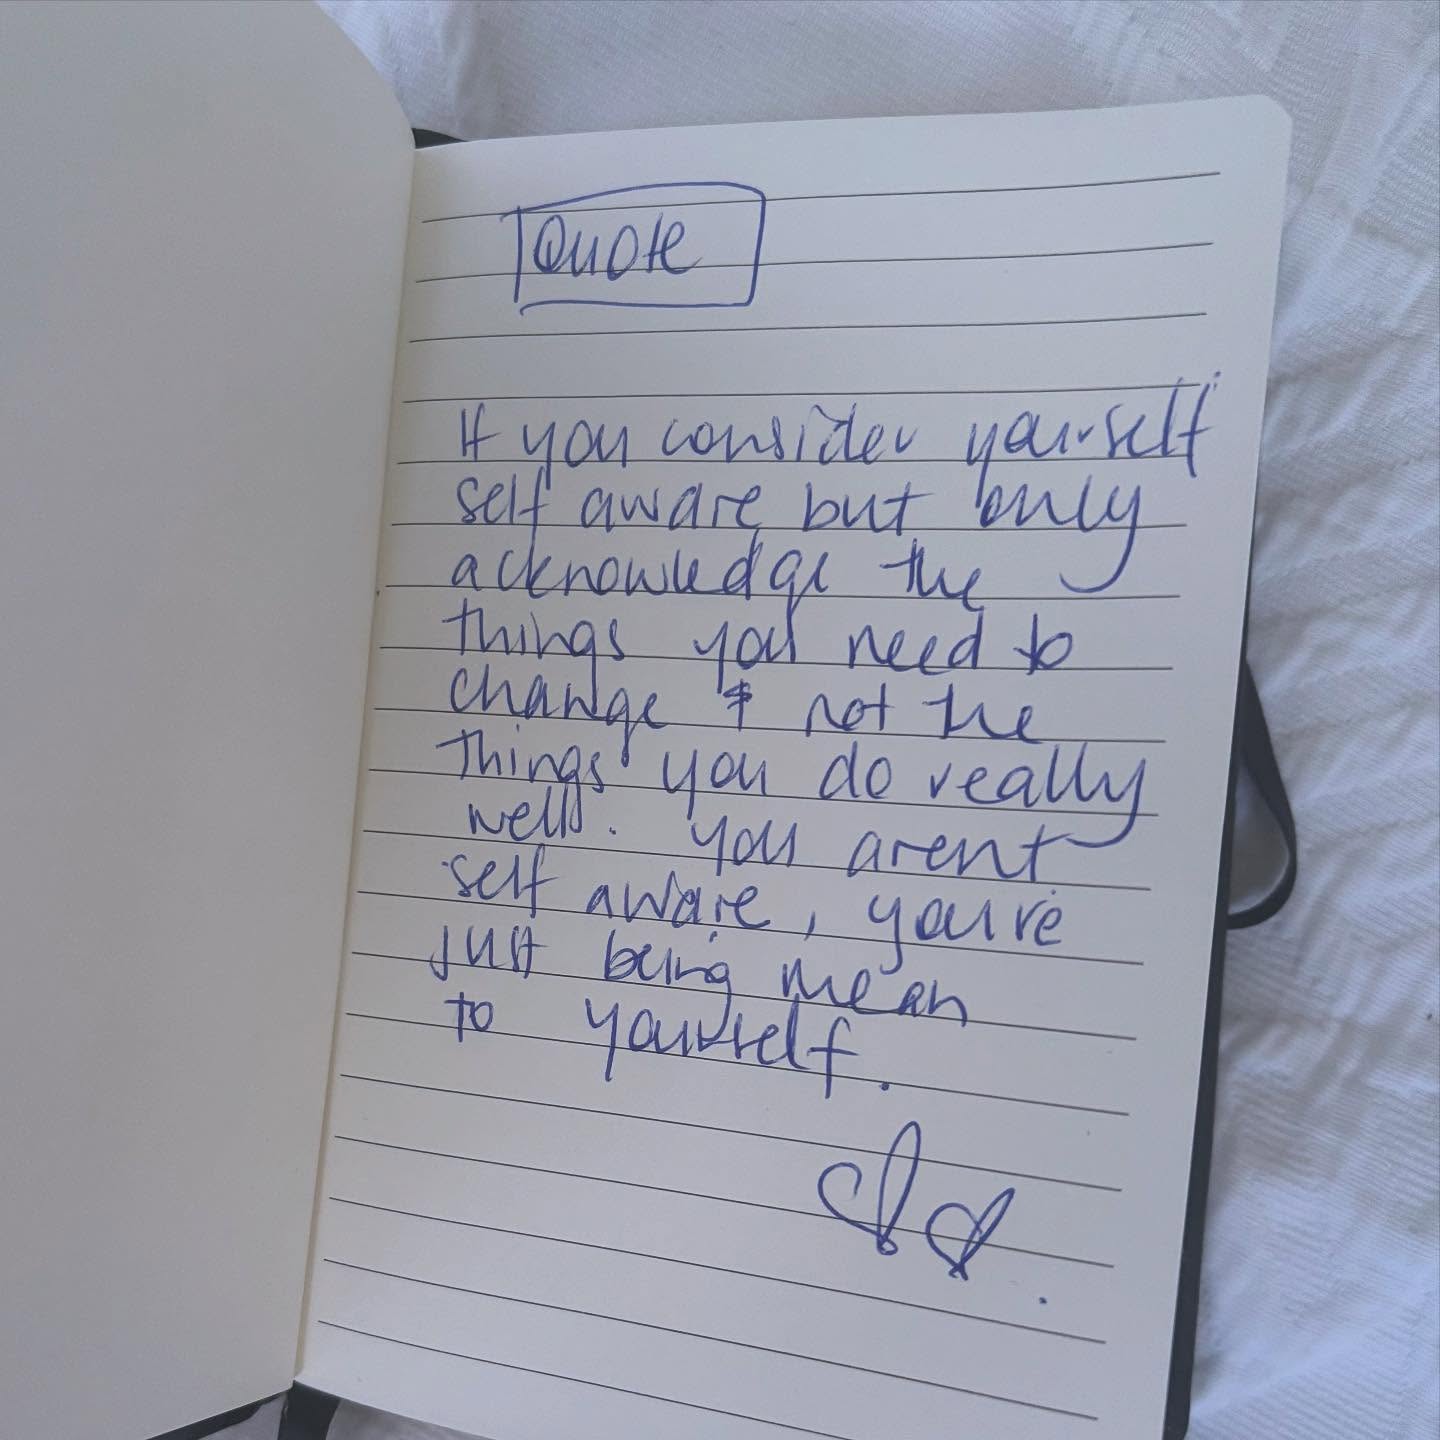 Quote
If you consider yourself
self aware but only
acknowledge the
things you need to
change & not the
things you do really
well. you arent
self aware, you're
just being mean
to yourself.